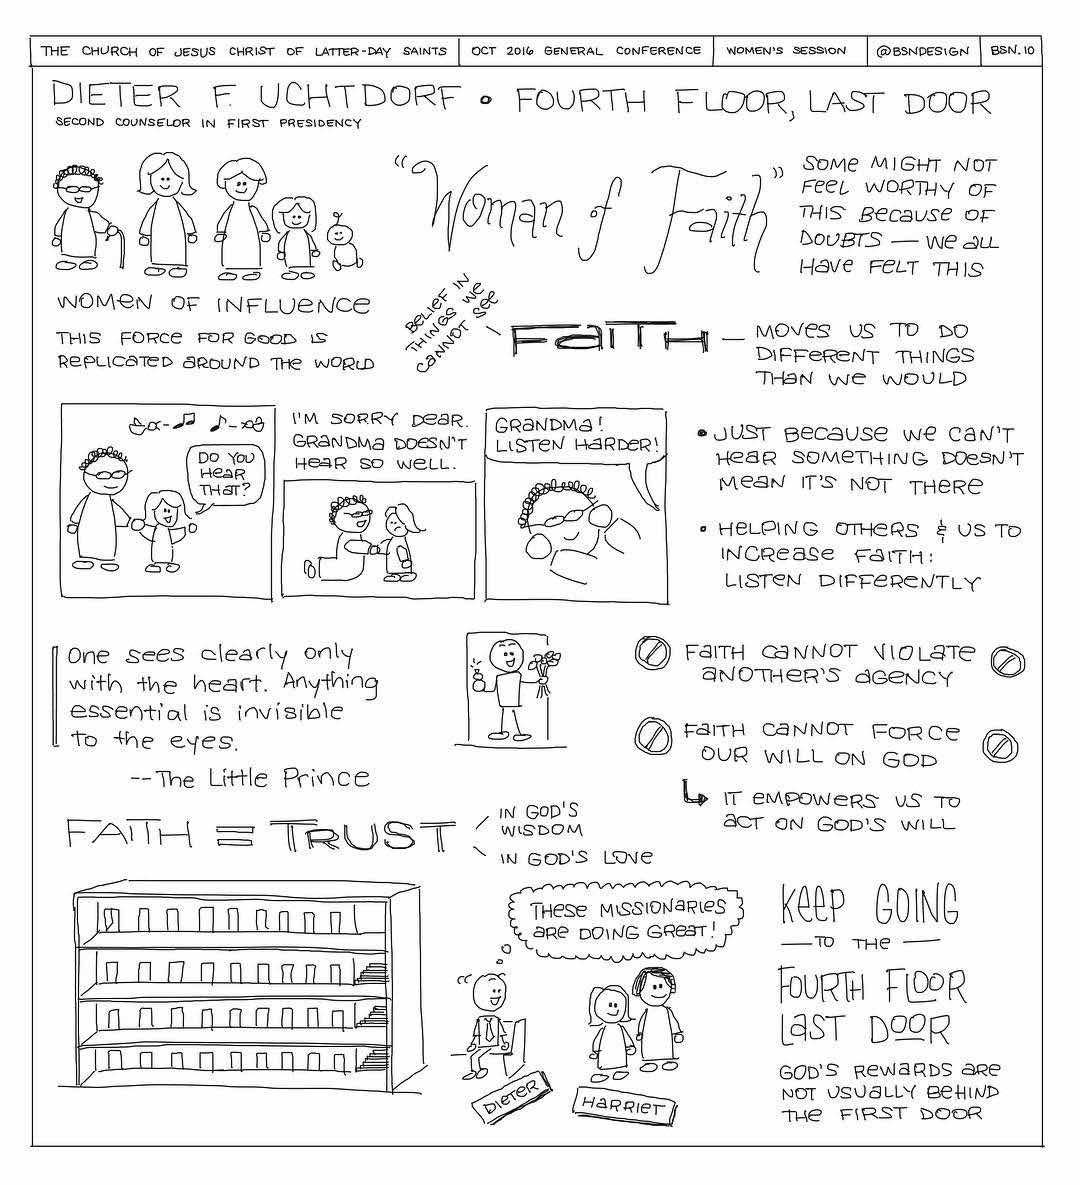 THE CHURCH OF JESUS CHRIST OF LATTER-DAY SAINTS
OCT 2016 GENERAL CONFERENCE
WOMEN'S SESSION
@BSNDESIGN
BSN.10
DIETER F. UCHTDORF • FOURTH FLOOR, LAST DOOR
SECOND COUNSELOR IN FIRST PRESIDENCY
WOMEN OF INFLUENCE
THIS FORCE FOR GOOD IS
REPLICATED AROUND THE WORLD
"Woman of Faith"
SOME MIGHT NOT
FEEL WORTHY OF
THIS BECAUSE OF
DOUBTS — WE ALL
HAVE FELT THIS
BELIEF IN
THINGS WE
CANNOT SEE
FAITH
MOVES US TO DO
DIFFERENT THINGS
THAN WE WOULD
DO YOU
HEAR
THAT?
I'M SORRY DEAR.
GRANDMA DOESN'T
HEAR SO WELL.
GRANDMA!
LISTEN HARDER!
• JUST BECAUSE WE CAN'T
HEAR SOMETHING DOESN'T
MEAN IT'S NOT THERE
• HELPING OTHERS & US TO
INCREASE FAITH:
LISTEN DIFFERENTLY
One sees clearly only
with the heart. Anything
essential is invisible
to the eyes.
--The Little Prince
FAITH CANNOT VIOLATE
ANOTHER'S AGENCY
FAITH CANNOT FORCE
OUR WILL ON GOD
IT EMPOWERS US TO
ACT ON GOD'S WILL
FAITH = TRUST
IN GOD'S
WISDOM
IN GOD'S LOVE
THESE MISSIONARIES
ARE DOING GREAT!
DIETER
HARRIET
KEEP GOING
—TO THE—
FOURTH FLOOR
LAST DOOR
GOD'S REWARDS ARE
NOT USUALLY BEHIND
THE FIRST DOOR